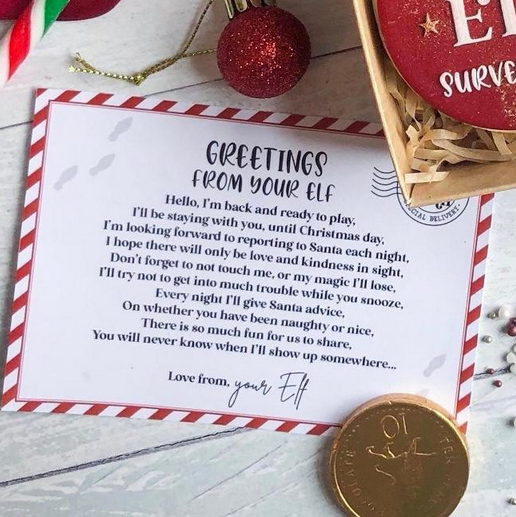 EL
SURVE
GREETINGS
FROM YOUR ELF
SPECIAL DELIVERY
Hello, I'm back and ready to play,
I'll be staying with you, until Christmas day,
I'm looking forward to reporting to Santa each night,
I hope there will only be love and kindness in sight,
Don't forget to not touch me, or my magic I'll lose,
I'll try not to get into much trouble while you snooze,
Every night I'll give Santa advice,
On whether you have been naughty or nice,
There is so much fun for us to share,
You will never know when I'll show up somewhere...
Love from, your Elf
10